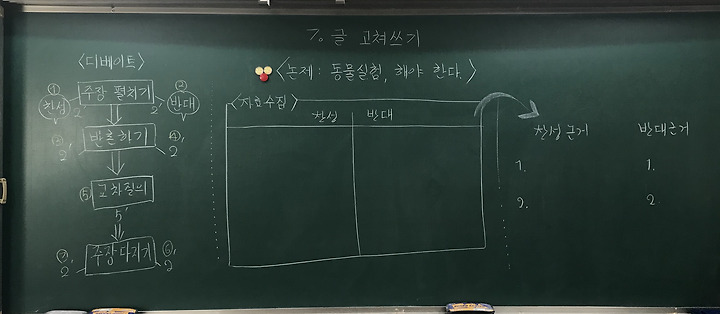 7. 글 고쳐쓰기
<디베이트>
① ②
찬성 주장 펼치기 반대
2' 2'
③ 반론하기 ④
2' 2
⑤ 교차질의
5'
⑦ 주장다지기 ⑥
2 2
<논제: 동물실험, 해야 한다.>
<자료수집>
찬성 반대
찬성 근거 반대근거
1. 1.
2. 2.